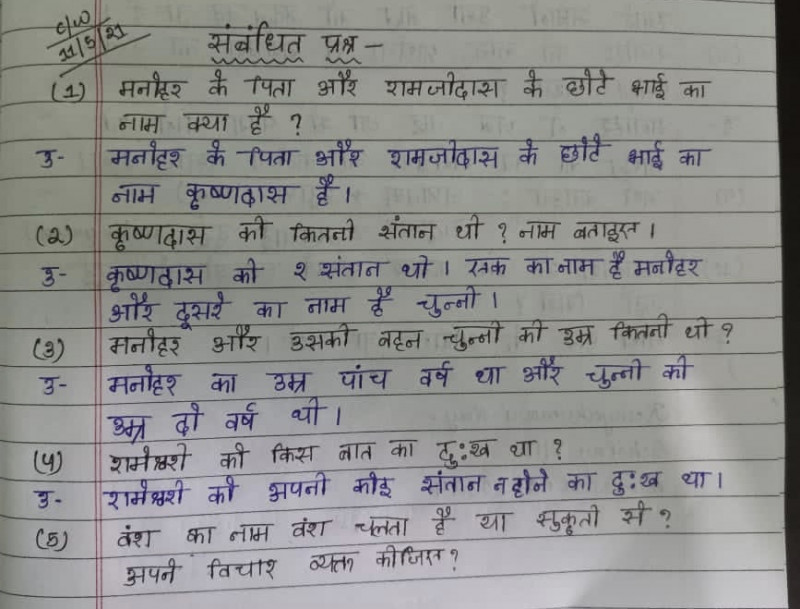 c/w
11/5/21
संबंधित प्रश्न -
(1) मनोहर के पिता और रामजीदास के छोटे भाई का
नाम क्या है ?
उ- मनोहर के पिता और रामजीदास के छोटे भाई का
नाम कृष्णदास है।
(2) कृष्णदास की कितनी संतान थी ? नाम बताइए।
उ- कृष्णदास की २ संतान थी। एक का नाम है मनोहर
और दूसरे का नाम है चुन्नी।
(3) मनोहर और उसकी बहन चुन्नी की उम्र कितनी थी ?
उ- मनोहर का उम्र पांच वर्ष था और चुन्नी की
उम्र दो वर्ष थी।
(4) रामेश्वरी को किस बात का दुःख था ?
उ- रामेश्वरी को अपनी कोई संतान न होने का दुःख था।
(5) वंश का नाम वंश चलता है या सुकृती से ?
अपने विचार व्यक्त कीजिए ?